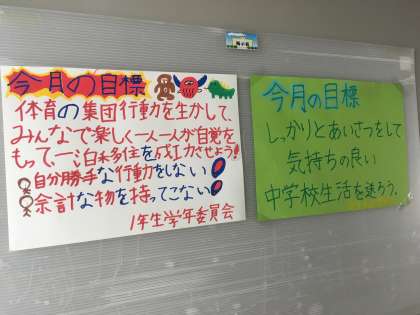 今月の目標
体育の集団行動を生かして、
みんなで楽しく一人一人が自覚を
もって一泊移住を成功させよう!
自分勝手な行動をしない
余計な物を持ってこない
1年生学年委員会
今月の目標
しっかりとあいさつをして
気持ちの良い
中学校生活を送ろう。